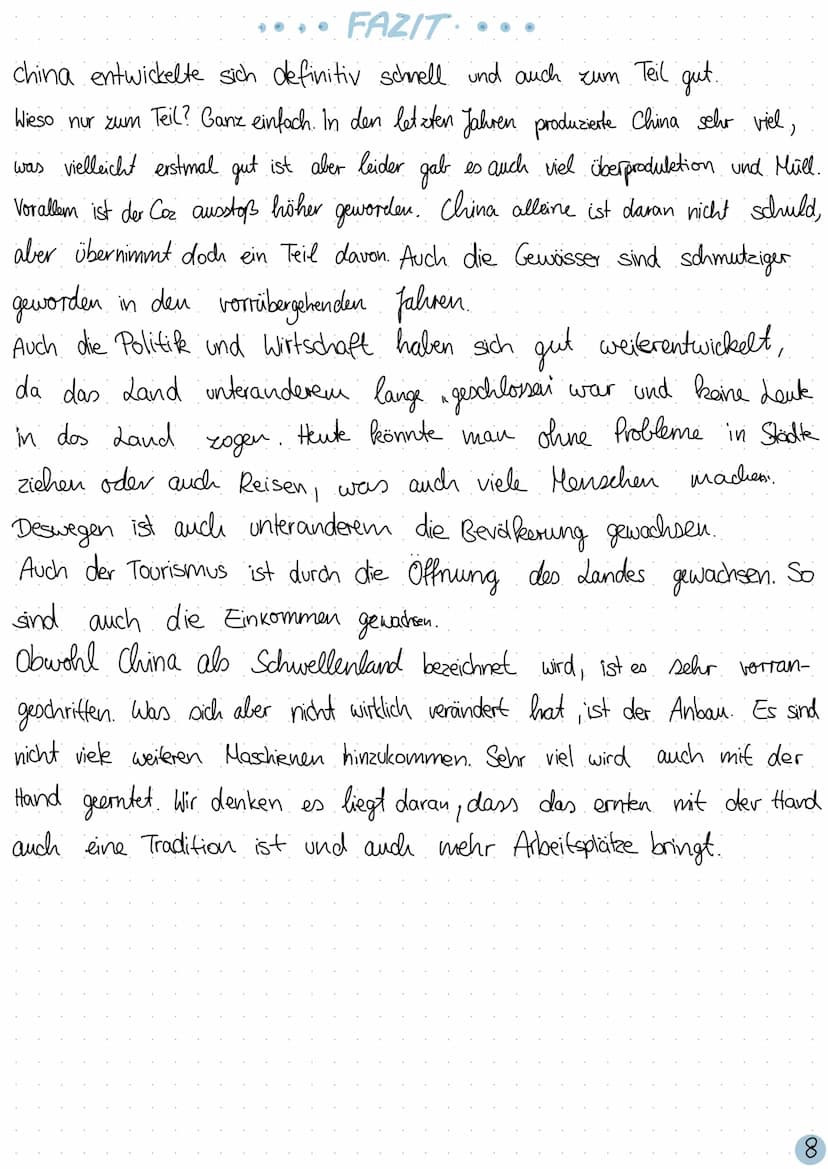 FAZIT
China entwickelte sich definitiv schnell und auch zum Teil gut.
Wieso nur zum Teil? Ganz einfach. In den letzten Jahren produzierte China sehr viel,
was vielleicht erstmal gut ist aber leider gab es auch viel überproduktion und Müll.
Vorallem ist der Co2 ausstoß höher geworden. China alleine ist daran nicht schuld,
aber übernimmt doch ein Teil davon. Auch die Gewässer sind schmutziger
geworden in den vorrübergehenden Jahren.
Auch die Politik und Wirtschaft haben sich gut weiterentwickelt,
da das Land unteranderem lange „geschlossen" war und keine Leute
in das Land zogen. Heute könnte man ohne Probleme in Städte
ziehen oder auch Reisen, was auch viele Menschen machen.
Deswegen ist auch unteranderem die Bevölkerung gewachsen.
Auch der Tourismus ist durch die Öffnung des Landes gewachsen. So
sind auch die Einkommen gewachsen.
Obwohl China als Schwellenland bezeichnet wird, ist es sehr vorran-
geschritten. Was sich aber nicht wirklich verändert hat, ist der Anbau. Es sind
nicht viele weiteren Maschienen hinzukommen. Sehr viel wird auch mit der
Hand geerntet. Wir denken es liegt daran, dass das ernten mit der Hand
auch eine Tradition ist und auch mehr Arbeitsplätze bringt.
8